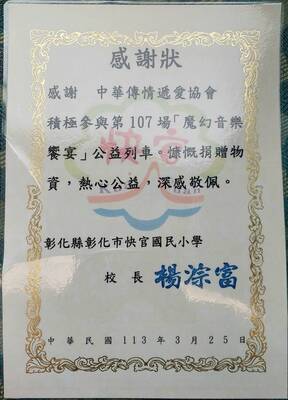 感謝狀
感謝 中華傳情遞愛協會
積極參與第107場「魔幻音樂
饗宴」公益列車。慷慨捐贈物
資，熱心公益，深感敬佩。
彰化縣彰化市快官國民小學
校長 楊淙富
中華民國113年3月25日